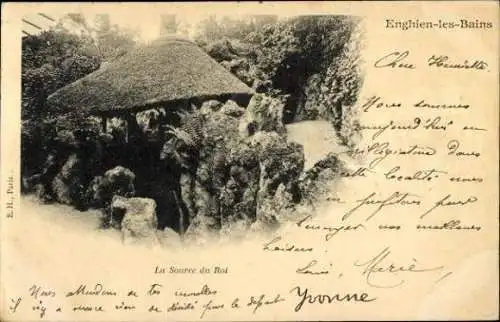 Enghien-les-Bains
Chère Henriette
Nous sommes
aujourd'hui en
dans
cette localité nous
en profitons pour
envoyer nos meilleurs
baisers
Louis Marie
Yvonne
La Source du Roi
Nous attendons de tes nouvelles
s'il y a encore rien de décidé pour le départ
E. H., Paris.